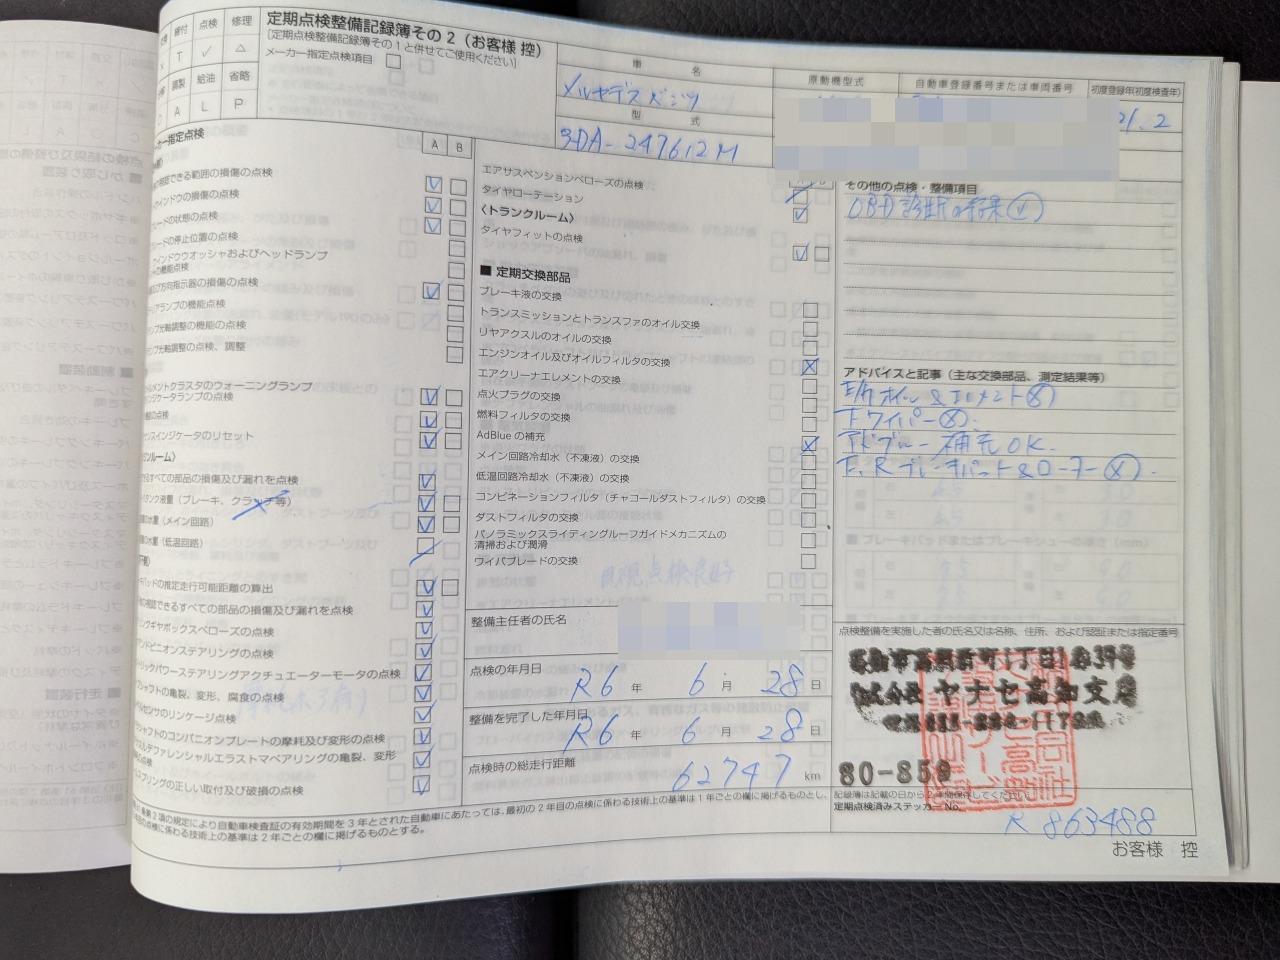 締付 点検 修理
T ✓ △
調製 給油 省略
A L P
定期点検整備記録簿その2（お客様 控）
[定期点検整備記録簿その1と併せてご使用ください]
メーカー指定点検項目
車名
メルセデスベンツ
型式
3DA-247612M
原動機型式
自動車登録番号または車両番号
初度登録年(初度検査年)
21.2
カー指定点検
A B
できる範囲の損傷の点検
ウインドウの損傷の点検
ードの状態の点検
ードの停止位置の点検
インドウウオッシャおよびヘッドランプ
の機能点検
及び方向指示器の損傷の点検
アランプの機能点検
光軸調整の機能の点検
光軸調整の点検、調整
ルメントクラスタのウォーニングランプ
ンジケータランプの点検
の点検
ンスインジケータのリセット
ンルーム）
るすべての部品の損傷及び漏れを点検
タンク液量（ブレーキ、クラッチ等）
水量（メイン回路）
水量（低温回路）
パッドの推定走行可能距離の算出
の視認できるすべての部品の損傷及び漏れを点検
ングギヤボックスベローズの点検
ンドピニオンステアリングの点検
トリックパワーステアリングアクチュエーターモータの点検
シャフトの亀裂、変形、腐食の点検
ルセンサのリンケージ点検
シャフトのコンパニオンプレートの摩耗及び変形の点検
スルデファレンシャルエラストマベアリングの亀裂、変形
の点検
ルスプリングの正しい取付及び破損の点検
エアサスペンションベローズの点検
タイヤローテーション
〈トランクルーム〉
タイヤフィットの点検
■ 定期交換部品
ブレーキ液の交換
トランスミッションとトランスファのオイル交換
リヤアクスルのオイルの交換
エンジンオイル及びオイルフィルタの交換
エアクリーナエレメントの交換
点火プラグの交換
燃料フィルタの交換
AdBlue の補充
メイン回路冷却水（不凍液）の交換
低温回路冷却水（不凍液）の交換
コンビネーションフィルタ（チャコールダストフィルタ）の交換
ダストフィルタの交換
パノラミックスライディングルーフガイドメカニズムの
清掃および潤滑
ワイパブレードの交換
整備主任者の氏名
点検の年月日
R6 年 6 月 28 日
整備を完了した年月日
R6 年 6 月 28 日
点検時の総走行距離
62747 km
その他の点検・整備項目
OBD診断の結果 ✓
アドバイスと記事（主な交換部品、測定結果等）
E/Gオイル&エレメント ⊗
F.ワイパー ⊗.
アドブルー補充OK.
F.Rブレーキパット&ローター ⊗.
点検整備を実施した者の氏名又は名称、住所、および認証または指定番号
ヤナセ高知支店
80-859
記録簿は記載の日から2年間保存してください。
定期点検済みステッカー No.
R 863488
条第2項の規定により自動車検査証の有効期間を3年とされた自動車にあたっては、最初の2年目の点検に係わる技術上の基準は1年ごとの欄に掲げるものとし、
目の点検に係わる技術上の基準は2年ごとの欄に掲げるものとする。
お客様 控